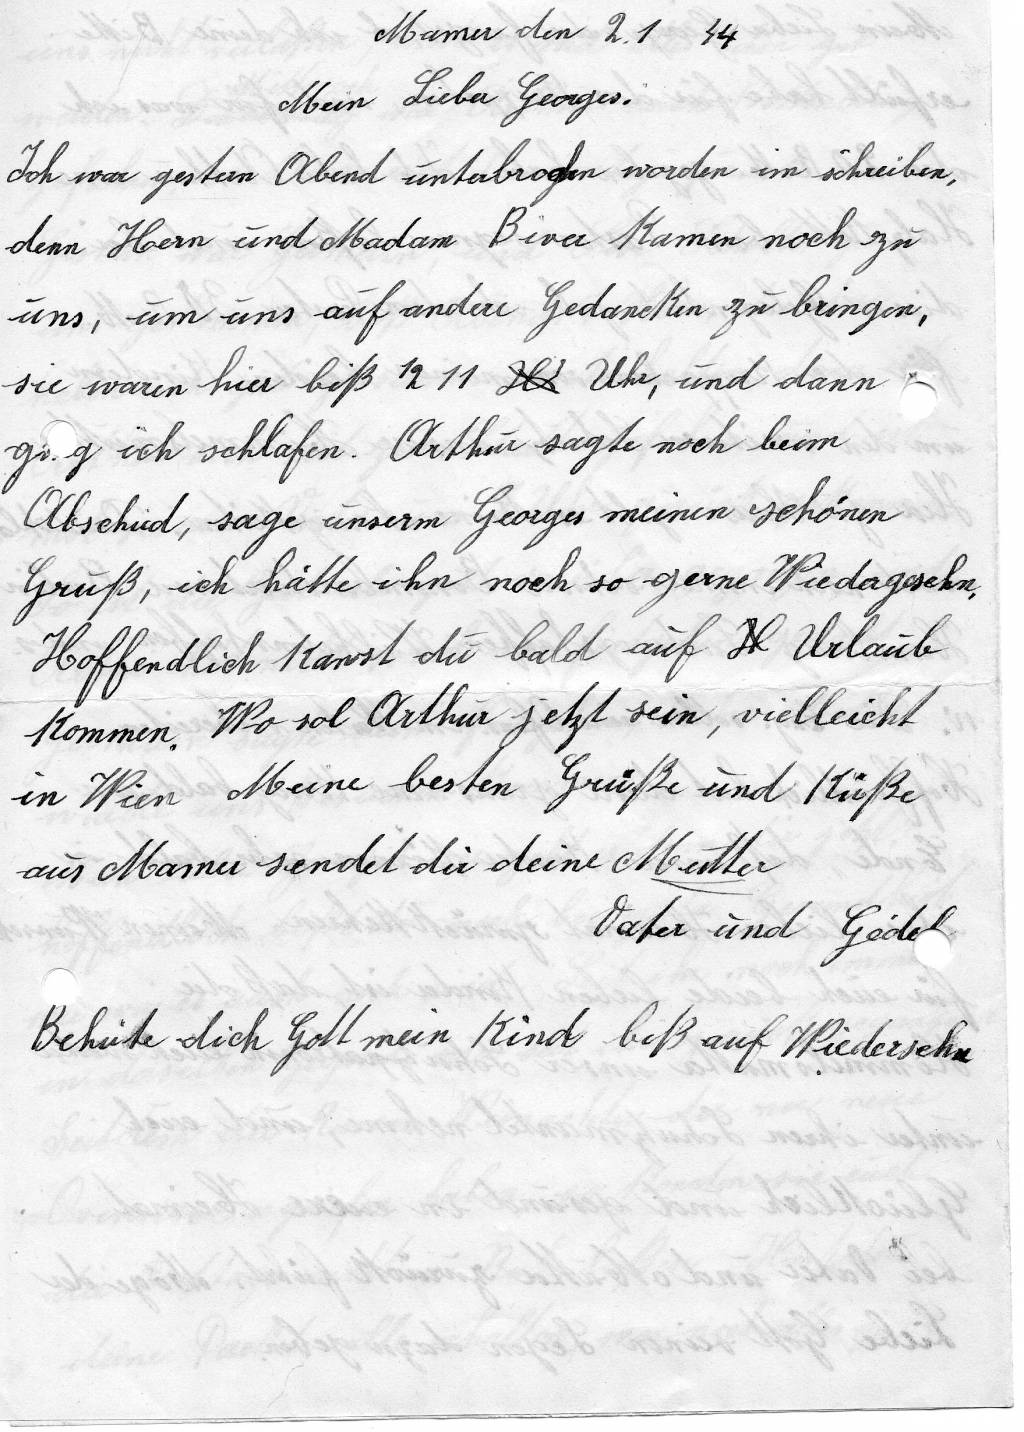 Mamer den 2.1 44
Mein Lieber Georges.
Ich war gestern Abend unterbrochen worden im schreiben,
denn Hern und Madam Biver Kamen noch zu
uns, um uns auf andere Gedancken zu bringen,
sie waren hier biß 12 11 Uhr, und dann
ging ich schlafen. Arthur sagte noch beim
Abschied, sage unserm Georges meinen schönen
Gruß, ich hätte ihn noch so gerne Wiedergesehn,
Hoffendlich Kanst du bald auf Urlaub
Kommen. Wo sol Arthur jetzt sein, vielleicht
in Wien Meine besten Grüße und Küße
aus Mamer sendet dir deine Mutter
Vater und Gödel
Behüte dich Gott mein Kind biß auf Wiedersehn